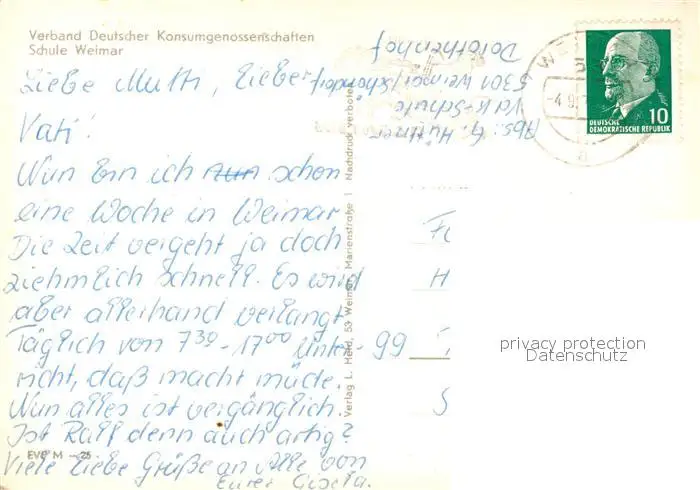 Verband Deutscher Konsumgenossenschaften
Schule Weimar
Liebe Mutti, lieber
Vati!
Nun bin ich nun schon
eine Woche in Weimar
Die Zeit vergeht ja doch
ziehmlich schnell. Es wird
aber allerhand verlangt
Täglich von 7³⁰ - 17⁰⁰ Unter-
richt, daß macht müde.
Nun alles ist vergänglich.
Ist Ralf denn auch artig?
Viele liebe Grüße an Alle von
Eurer Gisela.
EVP M -.25
Verlag L. Held, 53 Weimar, Marienstraße 1 Nachdruck verboten
Abs: G. Hüttner
VdK-Schule
5301 Weimar/Schöndorf
Dorothenhof
WE
-4.9
a
DEUTSCHE
DEMOKRATISCHE REPUBLIK
10
F
H
99
S
privacy protection
Datenschutz